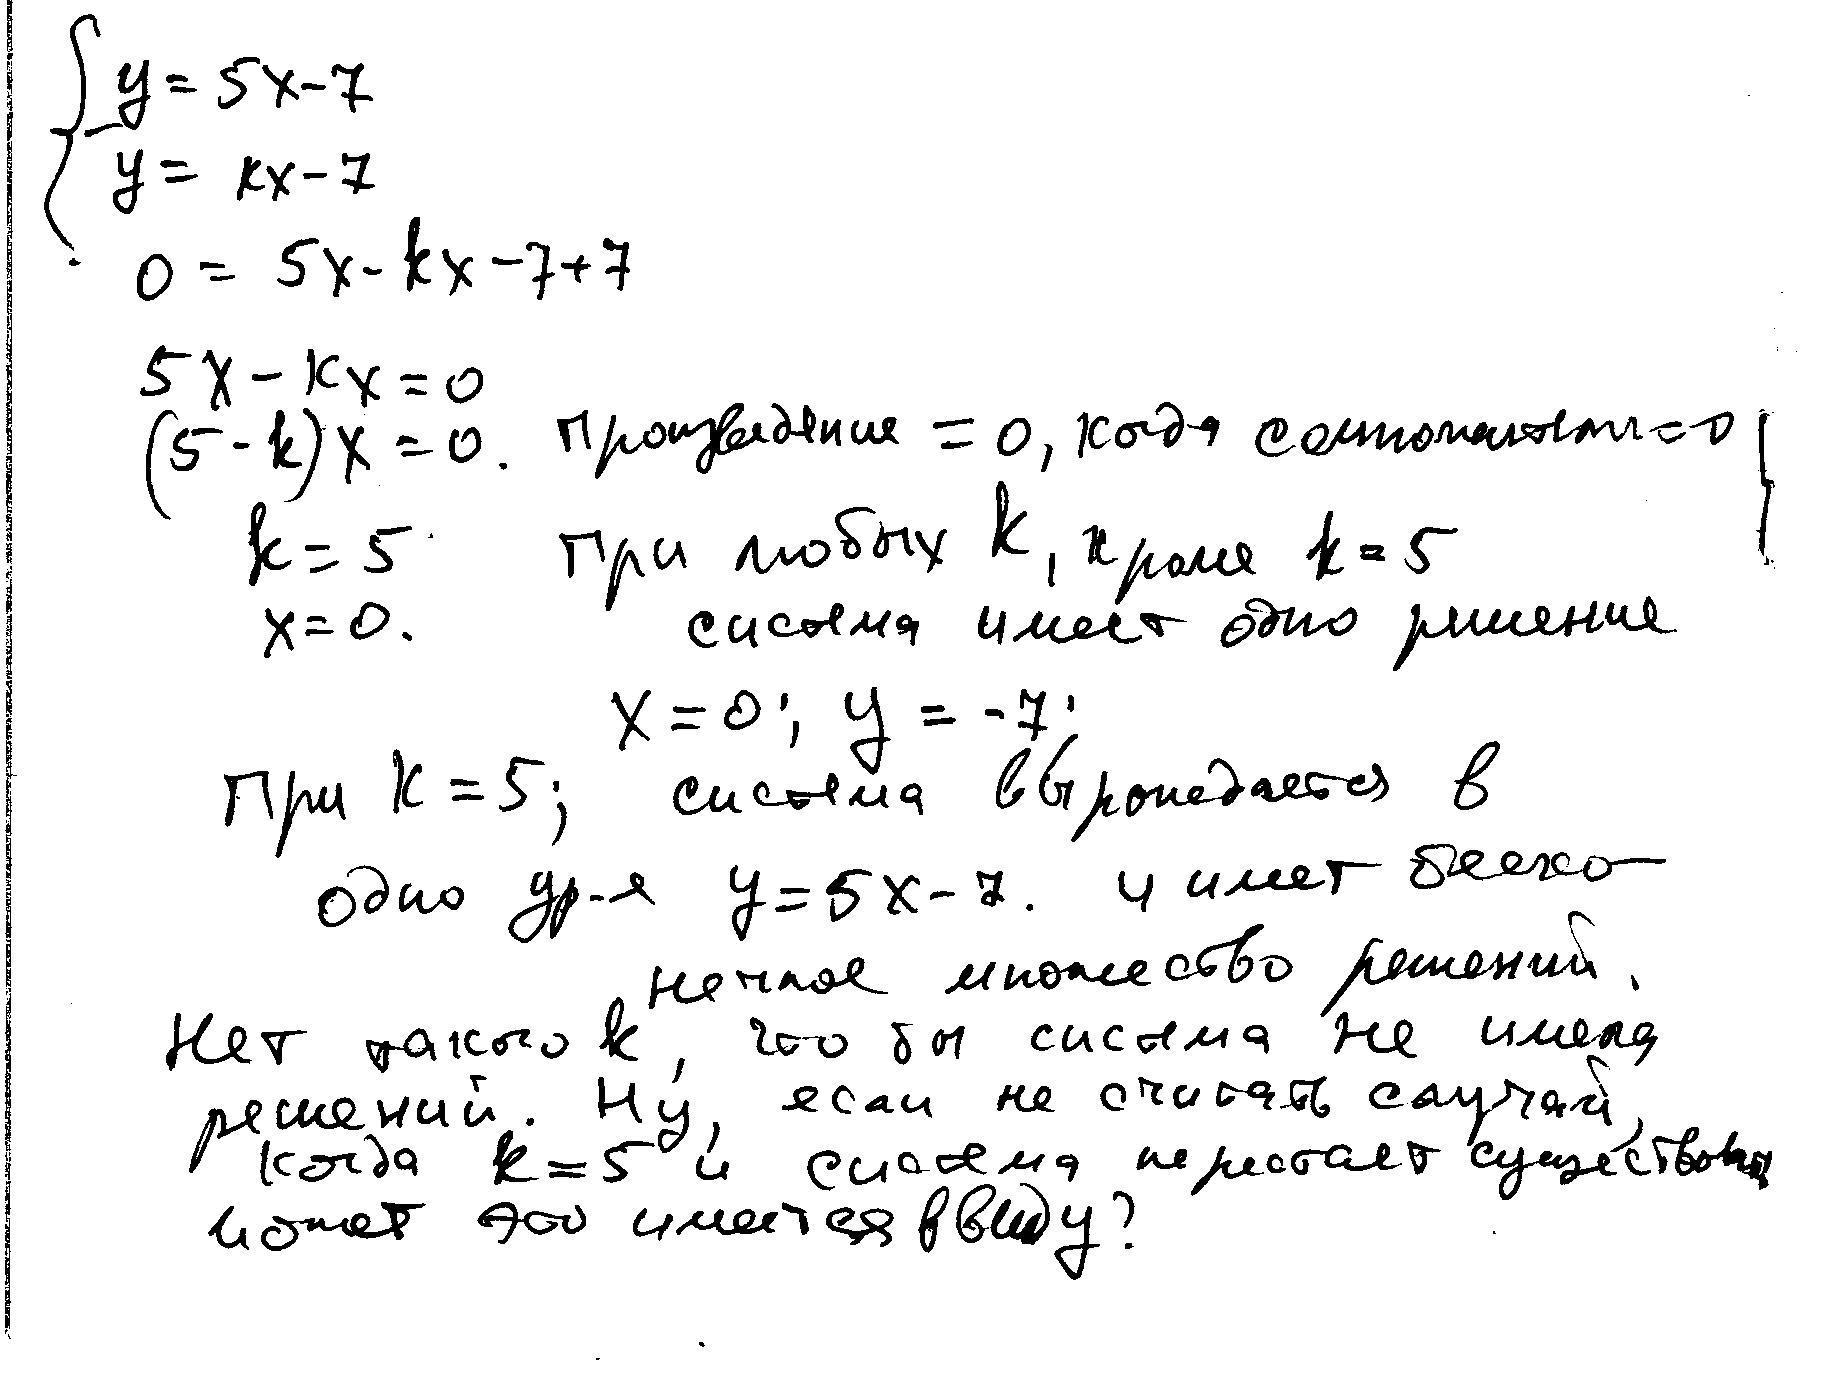 y = 5x - 7
y = kx - 7
0 = 5x - kx - 7 + 7
5x - kx = 0
(5 - k) x = 0. Произведение = 0, когда = 0
k = 5 При любых k, кроме k = 5
x = 0. система имеет одно решение
x = 0; y = -7;
При k = 5; система вырождается в
одно ур-е y = 5x - 7. и имет беско
нечное множество решений.
Нет такого k, что бы система не имела
решений. Ну, если не считать случай,
когда k = 5 и система перестает существовать
может это имеется ввиду?